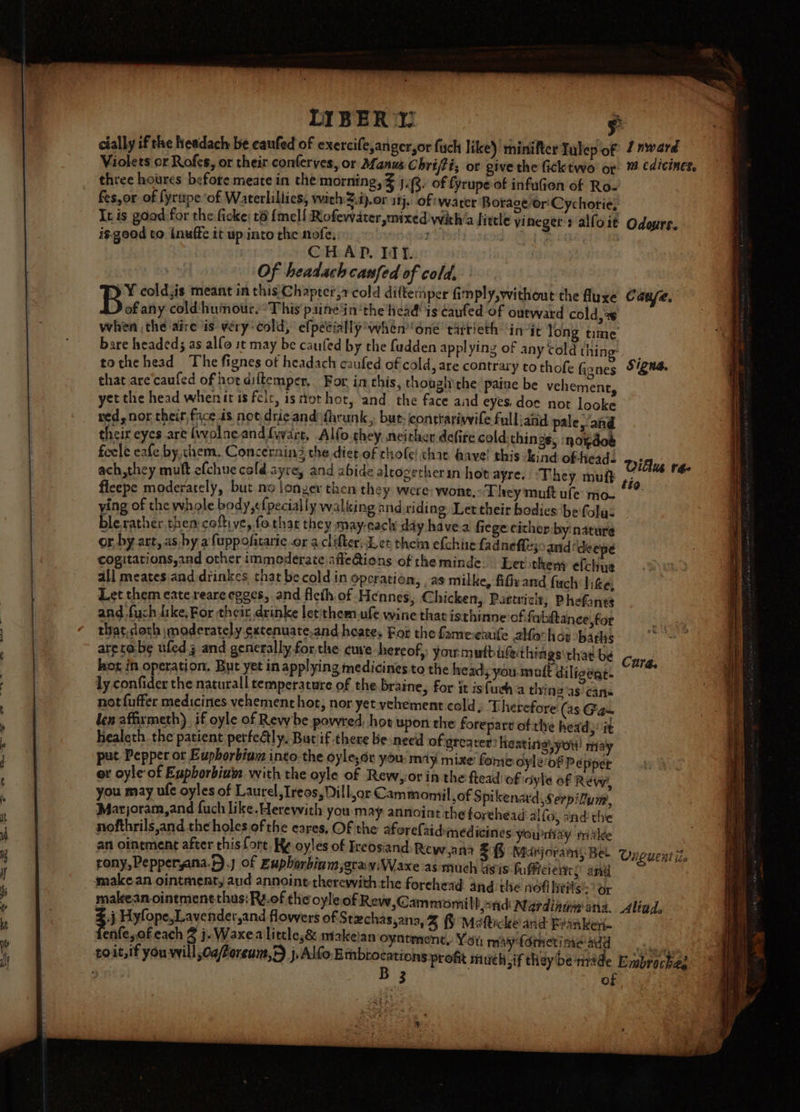 LIBER I. 5
cially if the Headach be caused of exercise,anger,or such like) minister Iulep of
Inward medicines.
Violets or Roses, or their conserves, or Manus Christi, or give the sick two or
three houres before meate in the morning, ℥ j.ß. of syrupe of infusion of Ro-
ses,or of syrupe of Waterlillies, with ℥.ij.or iij. of water Borage or Cychorie,
It is good for the sicke to smell Rosewater,mixed with a little vineger: also it
Odours.
is good to snuffe it up into the nose.
CHAP. III.
Of headach caused of cold.
BY cold,is meant in this Chapter,a cold distemper simply,without the fluxe
Cause.
of any cold humour. This paine in the head is caused of outward cold,as
when the aire is very cold, especially when one tarrieth in it long time
bare headed; as also it may be caused by the sudden applying of any cold thing
to the head The signes of headach caused of cold, are contrary to those signes
Signes.
that are caused of hot distemper. For in this, though the paine be vehement,
yet the head when it is felt, is not hot, and the face and eyes doe not looke
red, nor their face is not drie and shrunk, but contrariwise full and pale, and
their eyes are swolne and swart. Also they neither desire cold things, nor dob
feele ease by them. Concerning the diet of those that have this kind of head-
Victus ra-
ach,they must eschue cold ayre, and abide altogether in hot ayre. They must
tio.
sleepe moderately, but no longer then they were wont. They must use mo-
ving of the whole body,especially walking and riding Let their bodies be solu-
ble rather then costive, so that they may each day have a siege either by nature
or by art, as by a suppositarie or a clister. Let them eschue sadnesse, and deepe
cogitations,and other immoderate affections of the minde. Let them eschue
all meates and drinkes that be cold in operation, as milke, fish and such like,
Let them eate reare egges, and flesh of Hennes, Chicken, Partrich, Phesants
and such like. For their drinke let them use wine that is thinne of substance,for
that doth moderately extenuate,and heate, For the same cause also hot baths
are to be used; and generally for the cure hereof, you must use things that be
Cura.
hot in operation. But yet in applying medicines to the head, you must diligent-
ly consider the naturall temperature of the braine, for it is such a thing as can-
not suffer medicines vehement hot, nor yet vehement cold, Therefore (as Ga-
len affirmeth) if oyle of Rew be powred hot upon the forepart of the head, it
healeth the patient perfectly. But if there be need of greater heating,you may
put Pepper or Euphorbium into the oyle,or you may mixe some oyle of Pepper
or oyle of Euphorbium with the oyle of Rew, or in the stead of oyle of Rew,
you may use oyles of Laurel,Ireos,Dill,or Cammomil,of Spikenard,Serpillum,
Marjoram,and such like.Herewith you may annoint the forehead also, and the
nosthrils,and the holes of the eares, Of the aforesaid medicines you may make
an ointment after this sort. ℞ oyles of Ireos and Rew,ana ℥ ß Marjoram, Bee
Unguentũ.
rony,Pepper,ana.℈.j of Euphorbium,grav.Waxe as much as is sufficient; and
make an ointment, and annoint therewith the forehead and the nosthrils: or
make an ointment thus: ℞.of the oyle of Rew,Cammomill,and Nardinum ana.
Aliud.
℥.j Hysope,Lavender,and flowers of Stæchas,ana, ℥ ß Masticke and Franken-
sense,of each ℥ j. Waxe a little,& make an oyntment. You may sometime add
to it,if you will,Castoreum,℈ j. Also Embrocations profit much,if they be made
Embroches
B 3
of